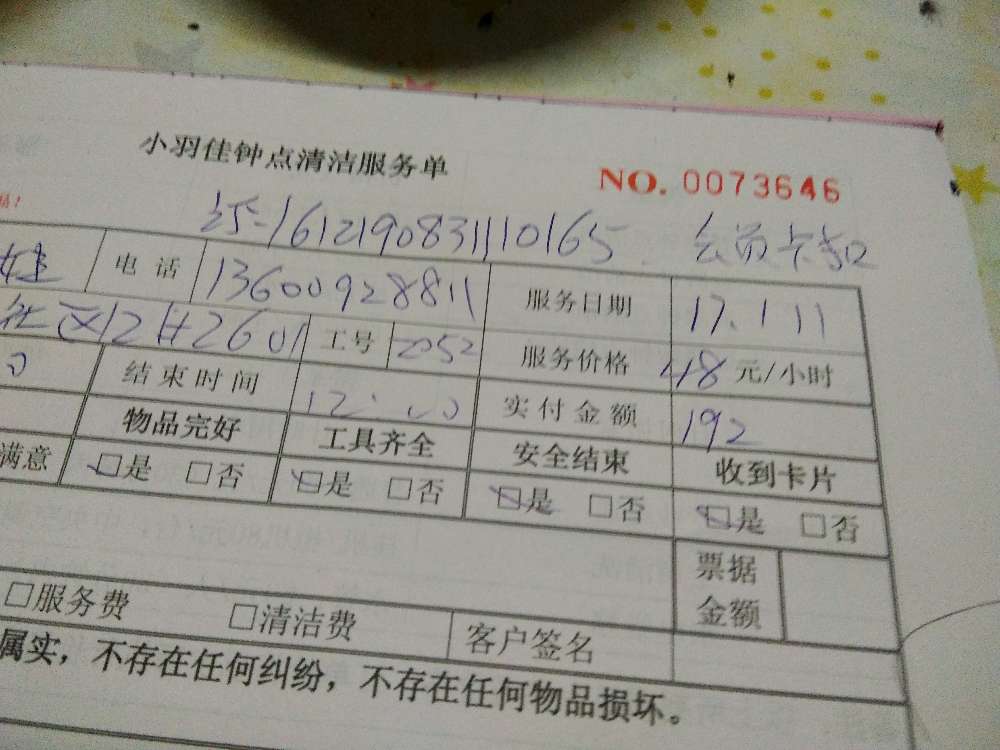 小羽佳钟点清洁服务单
NO. 0073646
161219083110165 会员卡扣
电话 13600928811 服务日期 17.1.11
社区12#2601 工号 2052 服务价格 48 元/小时
结束时间 12:00 实付金额 192
物品完好 工具齐全 安全结束 收到卡片
满意 □是 □否 □是 □否 □是 □否 □是 □否
票据
金额
□服务费 □清洁费 客户签名
属实，不存在任何纠纷，不存在任何物品损坏。